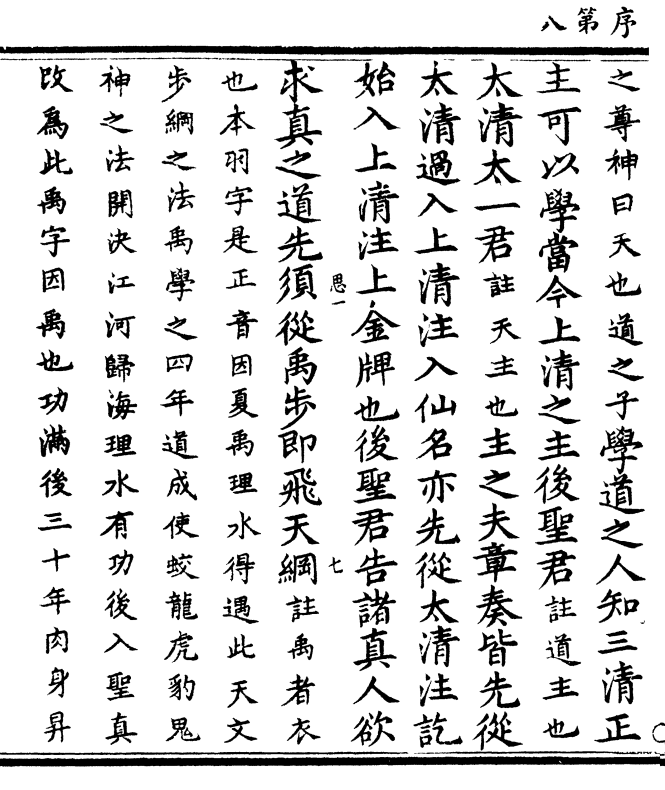 序第八
之尊神曰天也道之子學道之人知三清正
主可以學當今上清之主後聖君註道主也
太清太一君註天主也主之夫章奏皆先從
太清過入上清注入仙名亦先從太清注訖
始入上清注上金牌也後聖君告諸真人欲
思一
七
求真之道先須從禹步即飛天綱註禹者衣
也本羽字是正音因夏禹理水得遇此天文
步綱之法禹學之四年道成使蛟龍虎豹鬼
神之法開決江河歸海理水有功後入聖真
改為此禹字因禹也功滿後三十年肉身昇